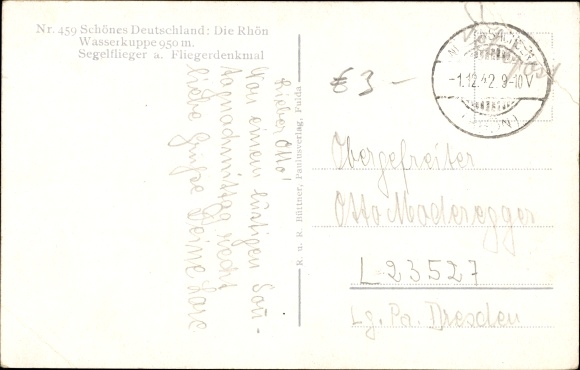 Nr. 459 Schönes Deutschland: Die Rhön
Wasserkuppe 950 m.
Segelflieger a. Fliegerdenkmal
Lieber Otto!
Von einem lustigen Son-
tagnachmittag recht
liebe Grüße Deine Lore
R. u. R. Büttner, Paulusverlag, Fulda
€ 3 -
-1.12.42.9-10V
Obergefreiter
Otto Moderegger
L 23527
Lg. Pa. Dresden